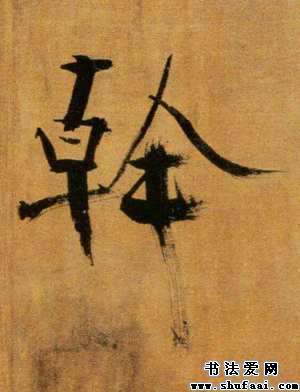 幹
书法爱网
www.shufaai.com